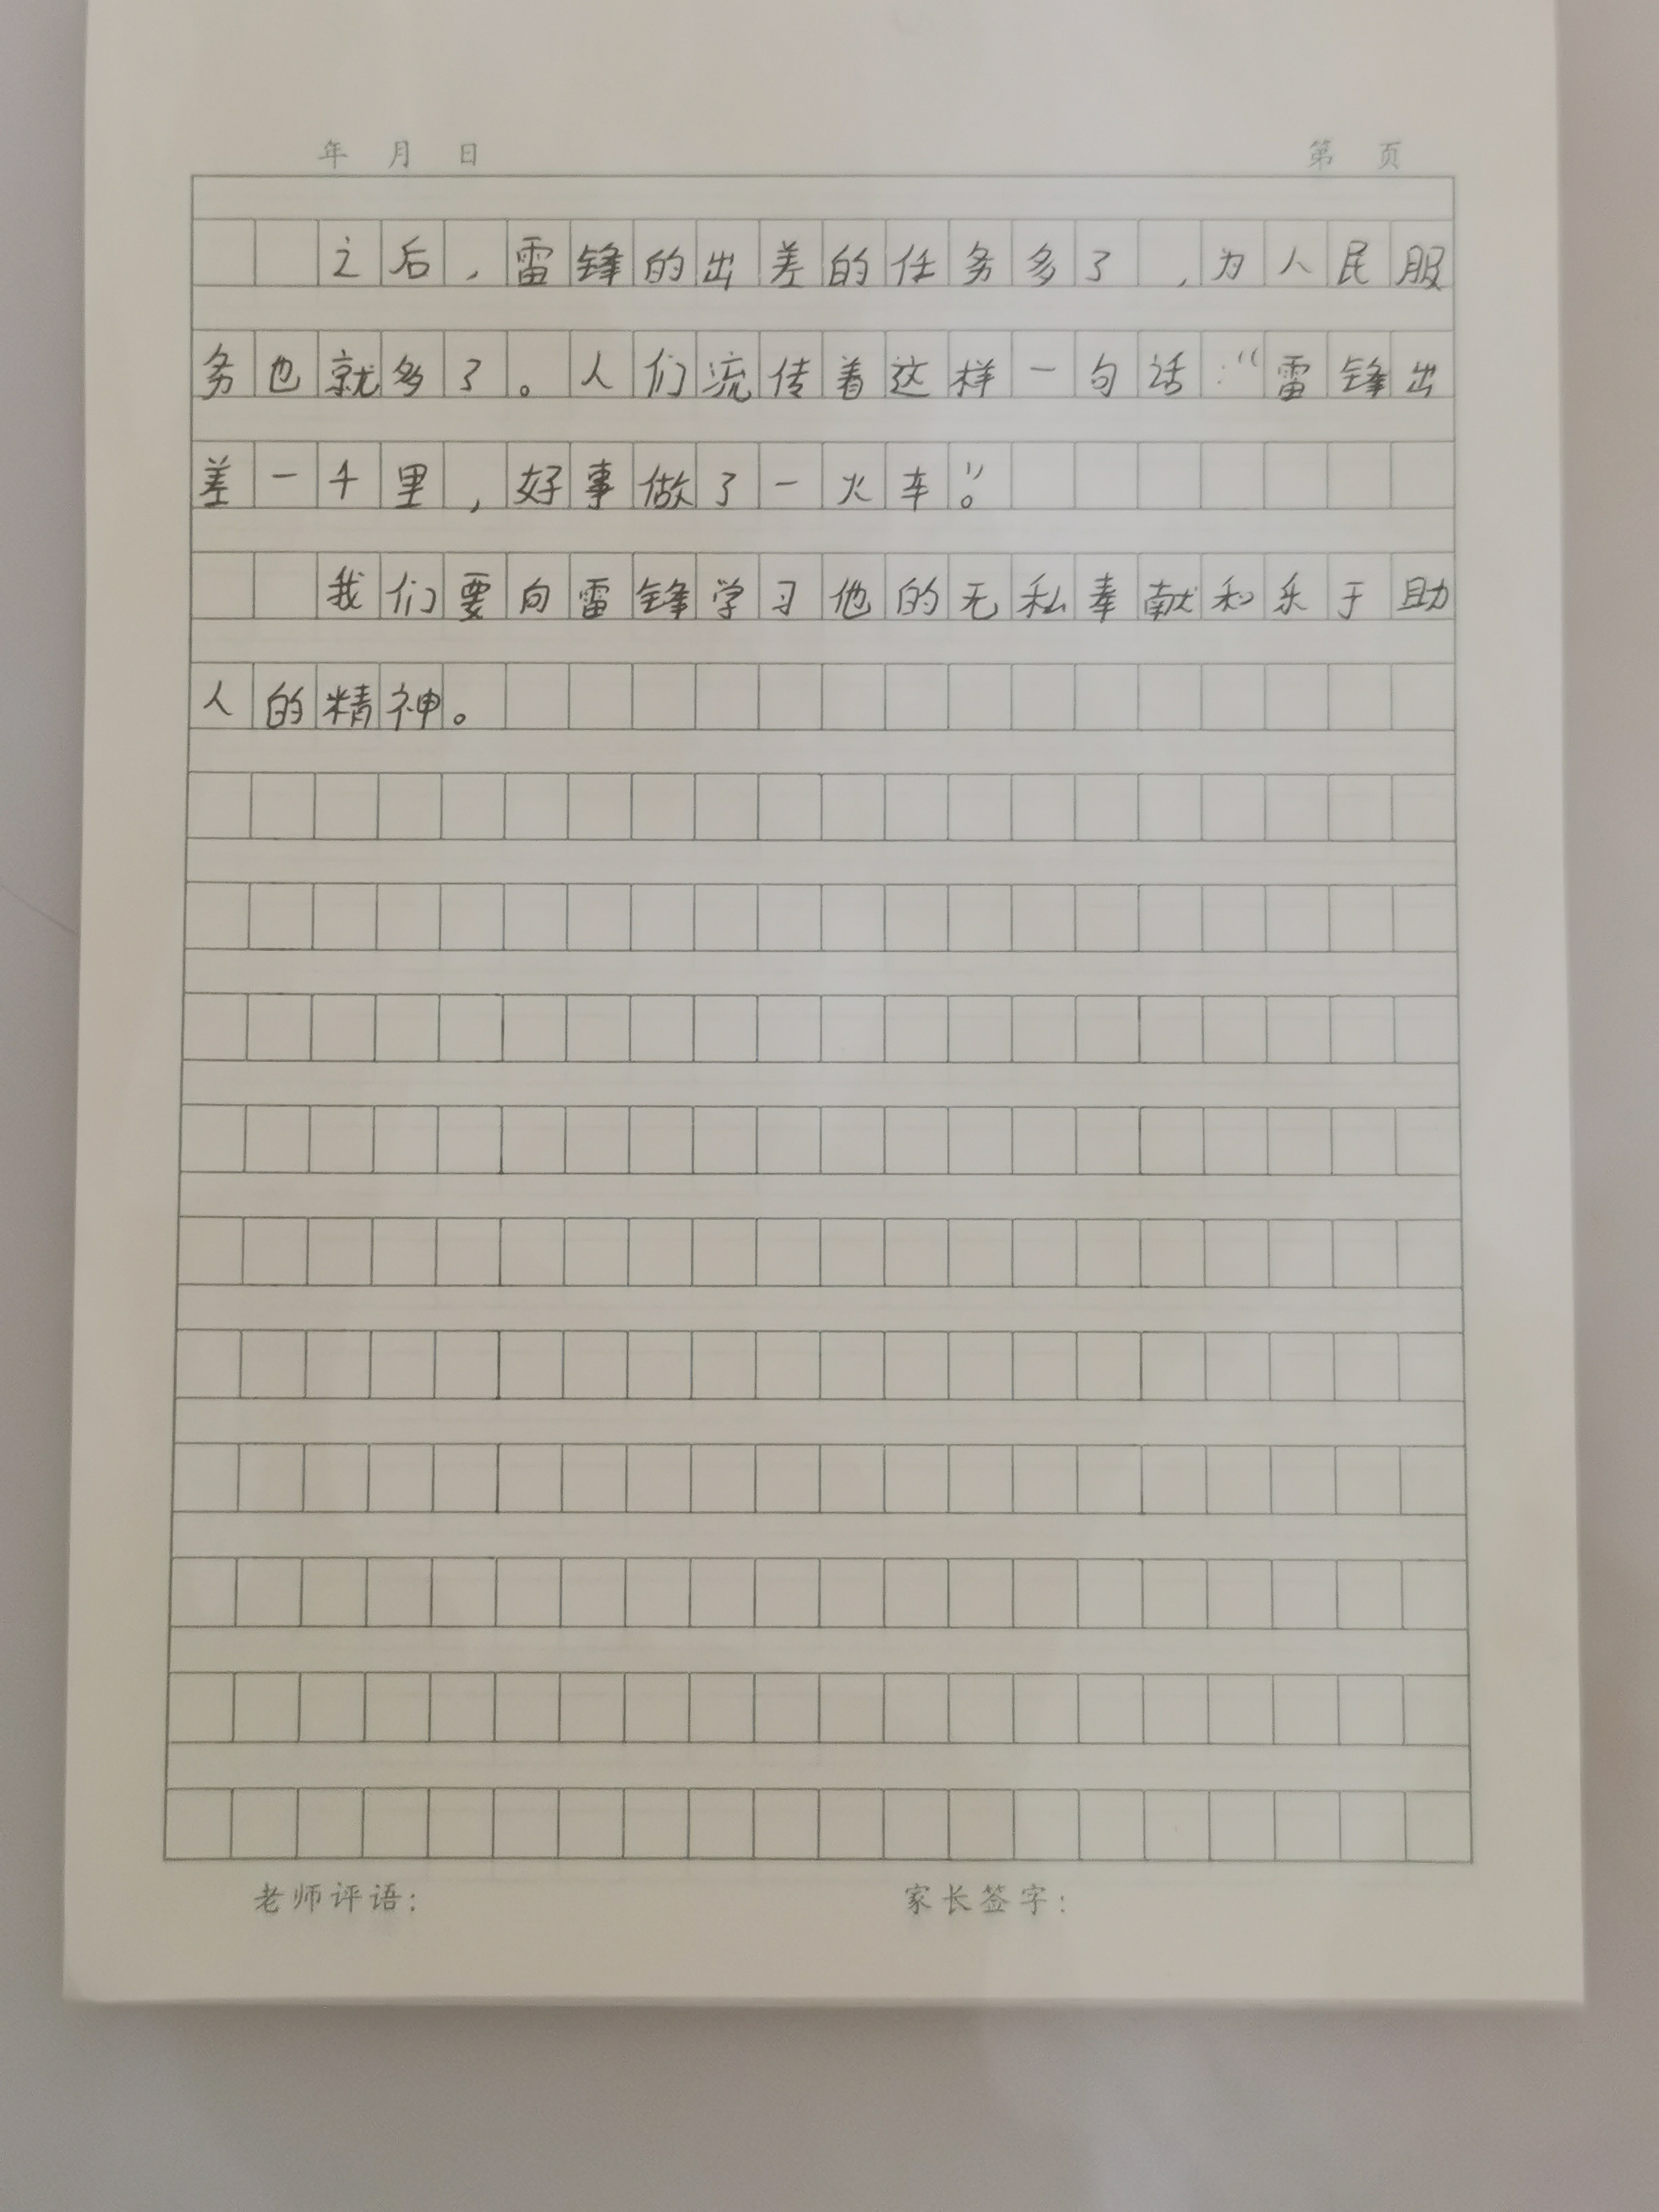 年 月 日 第 页
之后，雷锋的出差的任务多了，为人民服
务也就多了。人们流传着这样一句话：“雷锋出
差一千里，好事做了一火车”。
我们要向雷锋学习他的无私奉献和乐于助
人的精神。
老师评语： 家长签字：